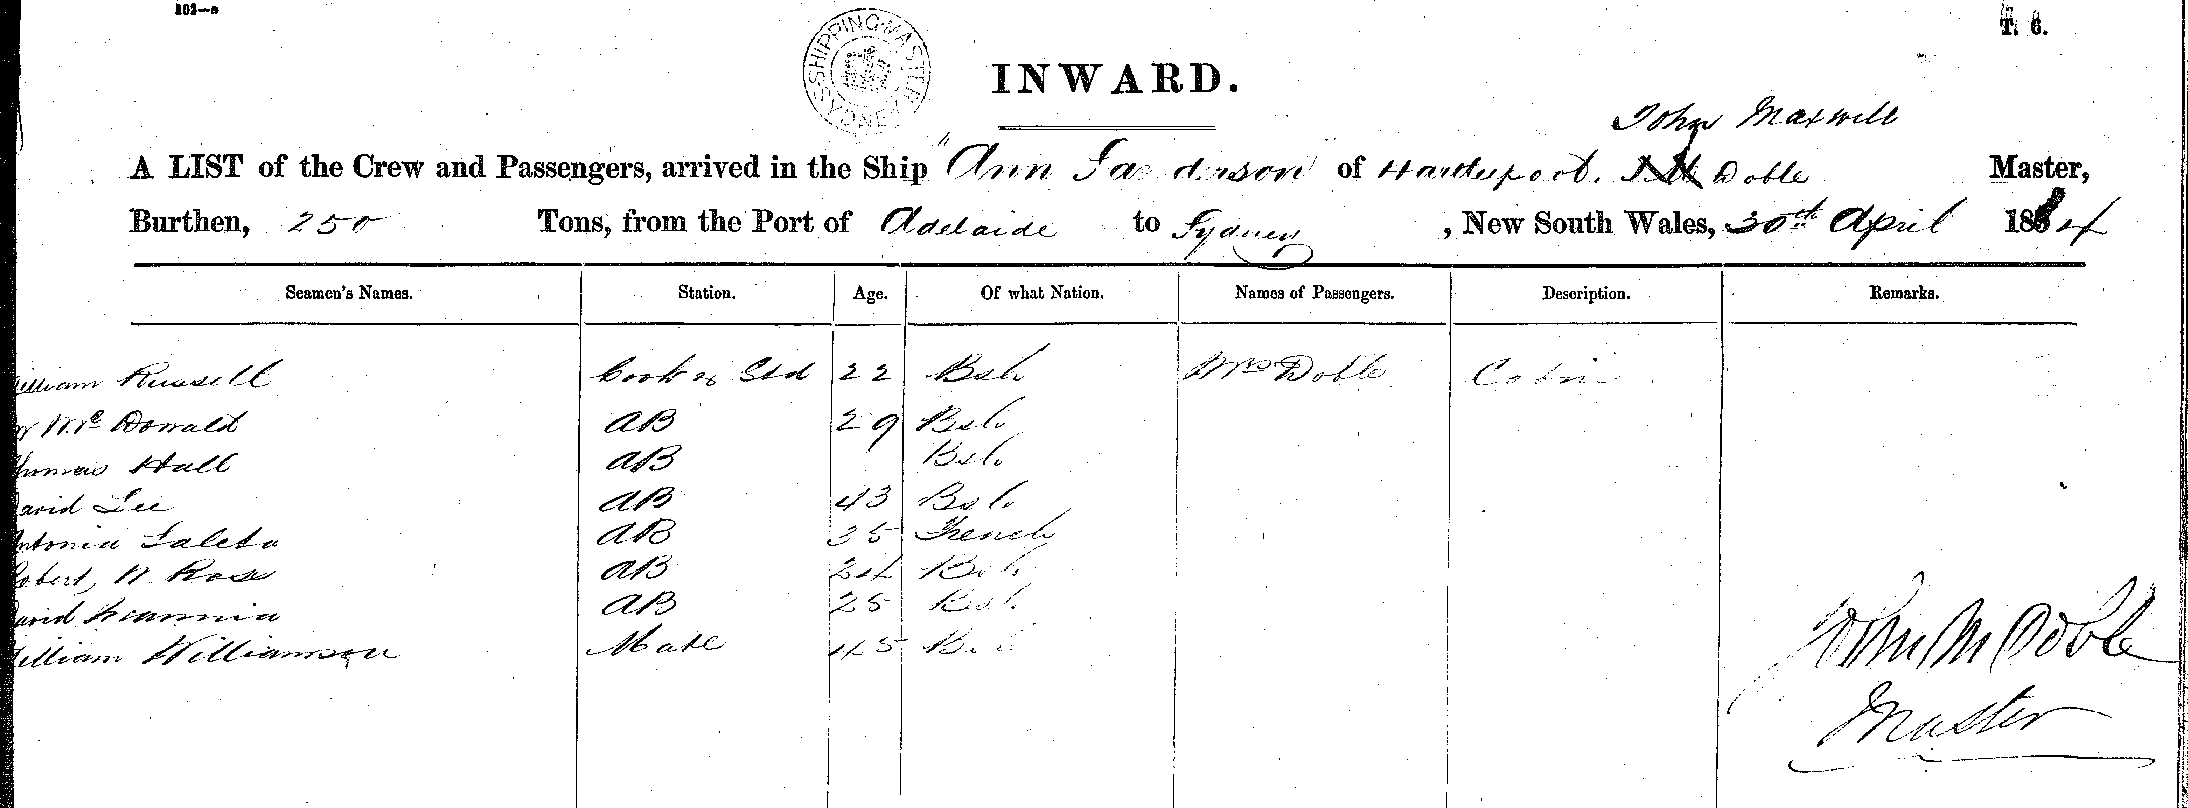 T. 6.
SHIPPING MASTER SYDNEY
INWARD.
John Maxwell
A LIST of the Crew and Passengers, arrived in the Ship "Ann Sanderson" of Hartlepool. Doble Master,
Burthen, 250 Tons, from the Port of Adelaide to Sydney, New South Wales, 30th April 1884
Seamen's Names. Station. Age. Of what Nation. Names of Passengers. Description. Remarks.
William Russell Cook & Std 22 Bsh Mrs Doble Cabin
McDonald AB 29 Bsh
Thomas Hall AB Bsh
David Lee AB 43 Bsh
Antonia Saleta AB 35 French
Robert Ross AB 24 Bsh
David AB 25 Bsh
William Williamson Mate 45 Bsh
John M Doble
Master